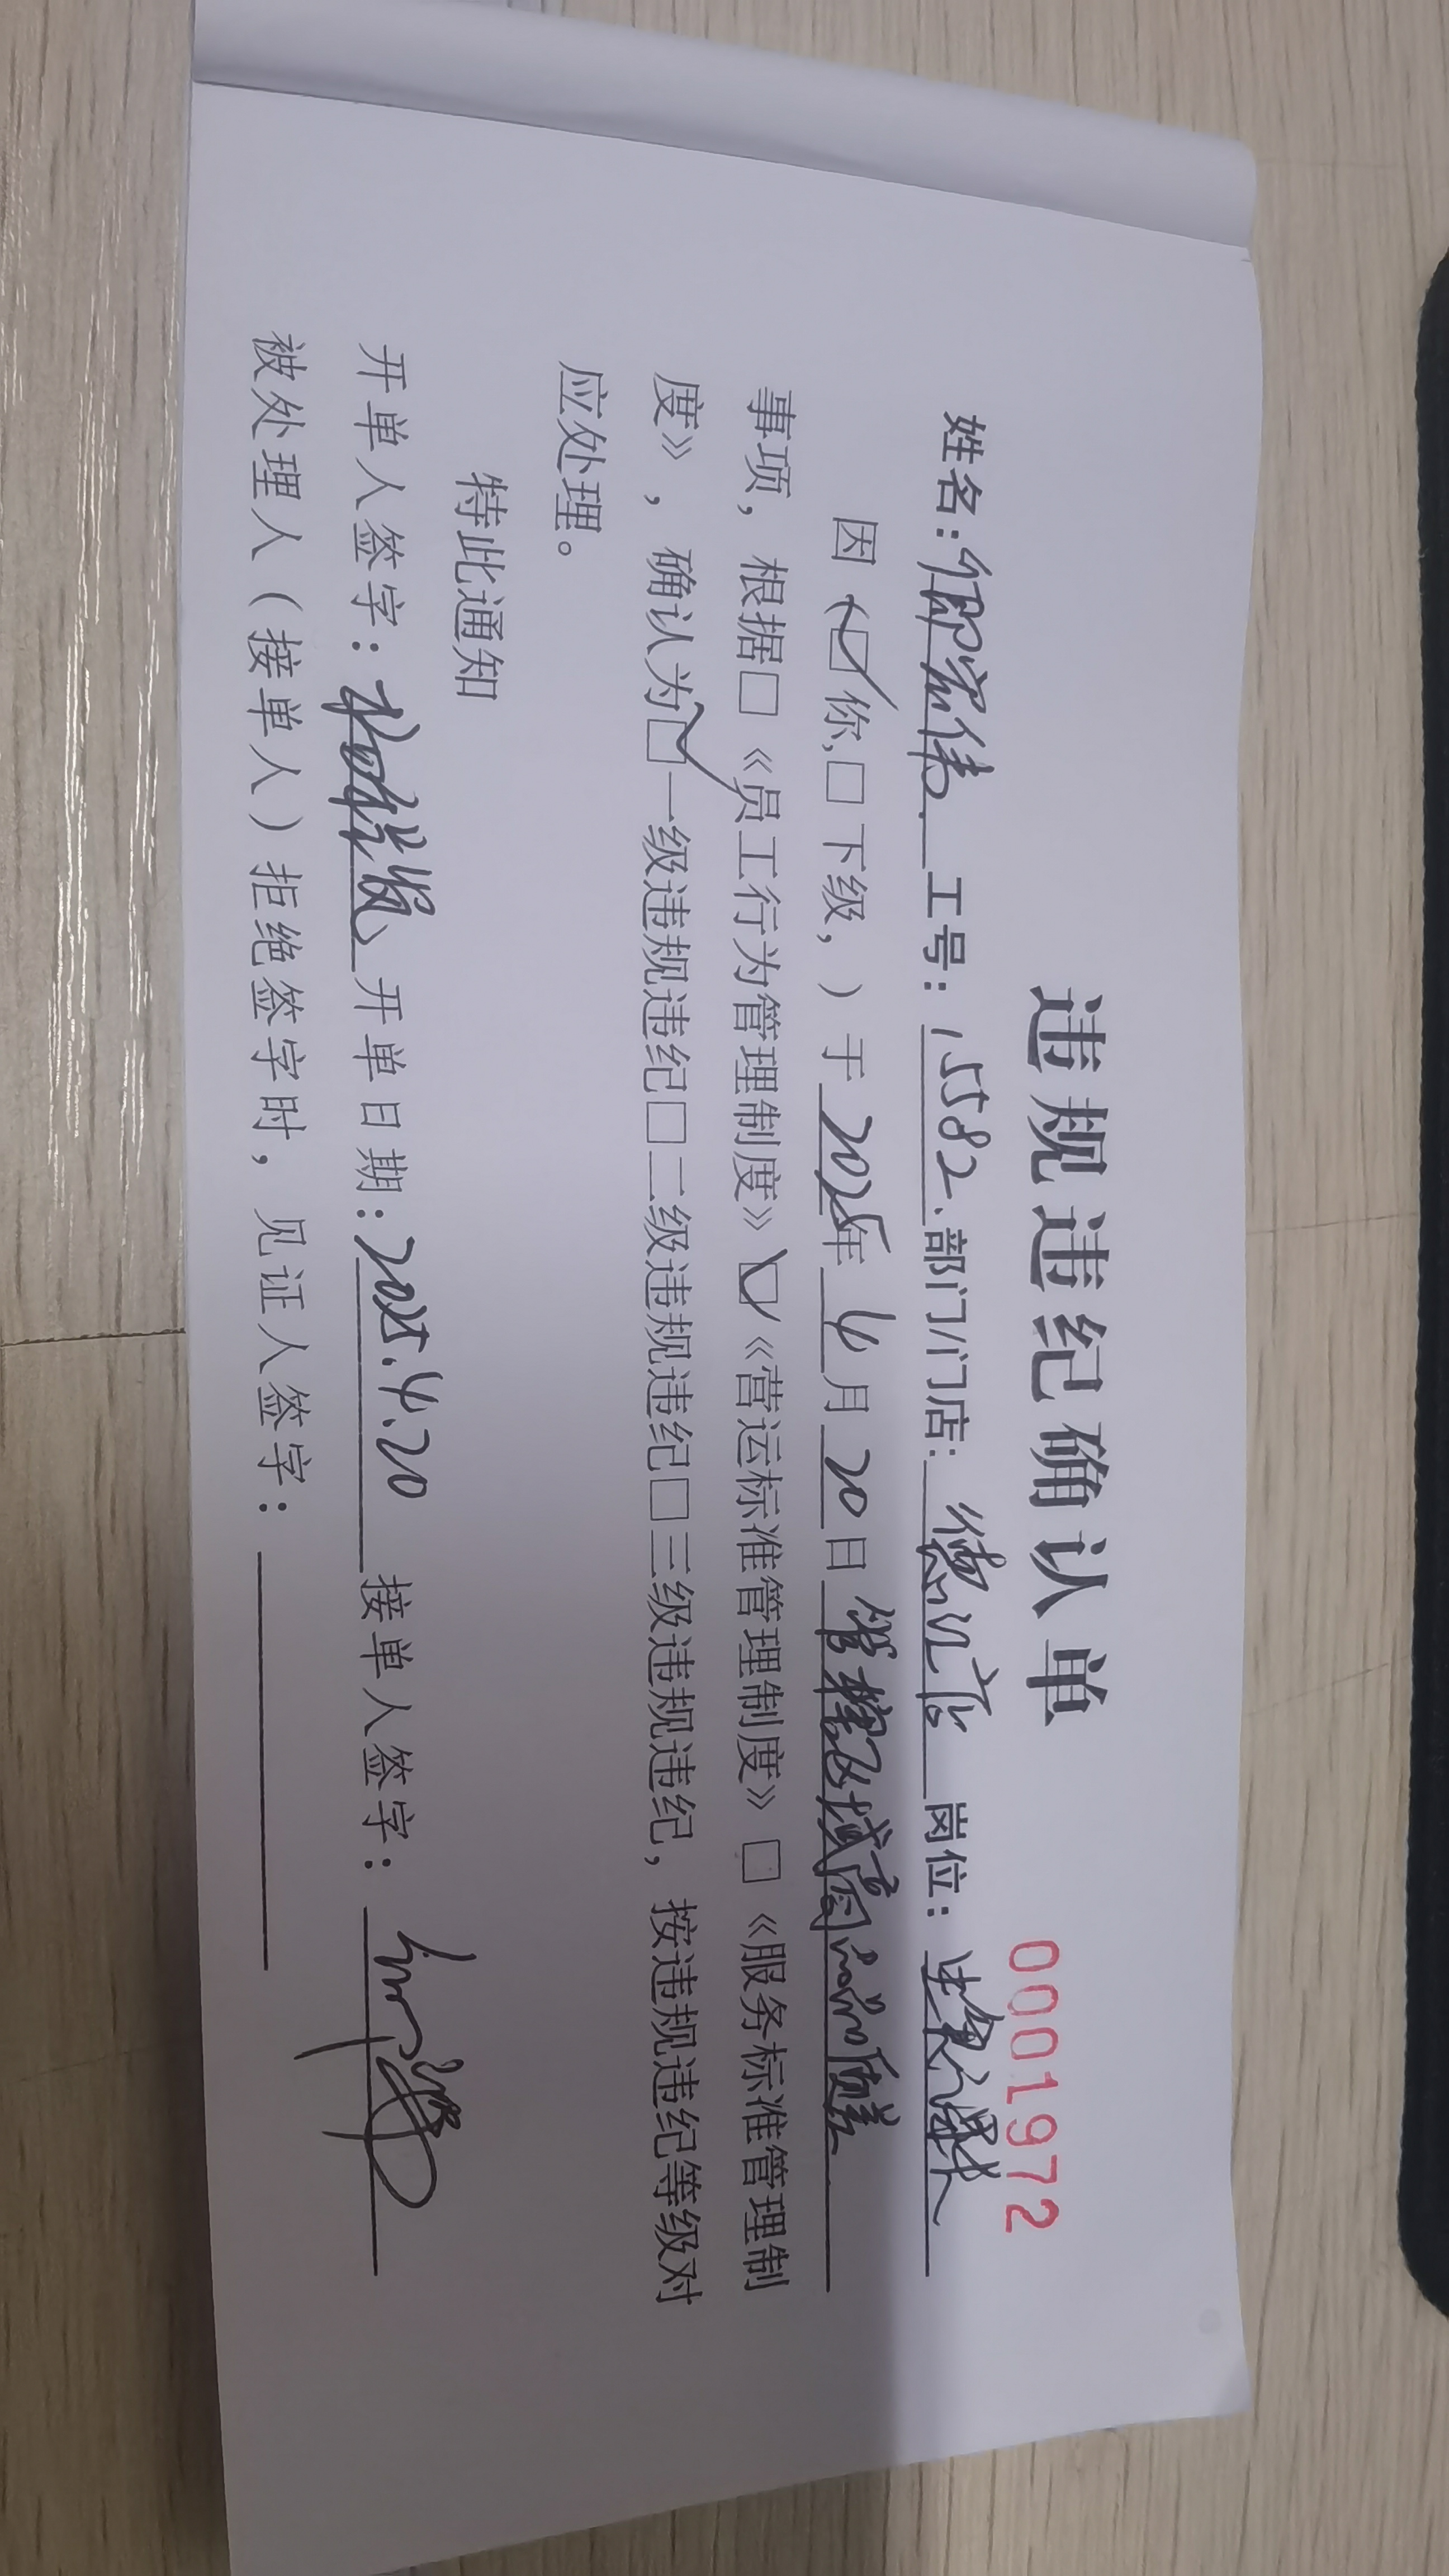 违规违纪确认单
0001972
姓名: 工号: 15582 部门/门店: 德江店 岗位: 生鲜
因（☑你,□下级,）于2025年4月20日管辖区域商品品质差
事项，根据□《员工行为管理制度》☑《营运标准管理制度》□《服务标准管理制
度》，确认为☑一级违规违纪□二级违规违纪□三级违规违纪，按违规违纪等级对
应处理。
特此通知
开单人签字: 开单日期: 2025.4.20 接单人签字:
被处理人（接单人）拒绝签字时，见证人签字: